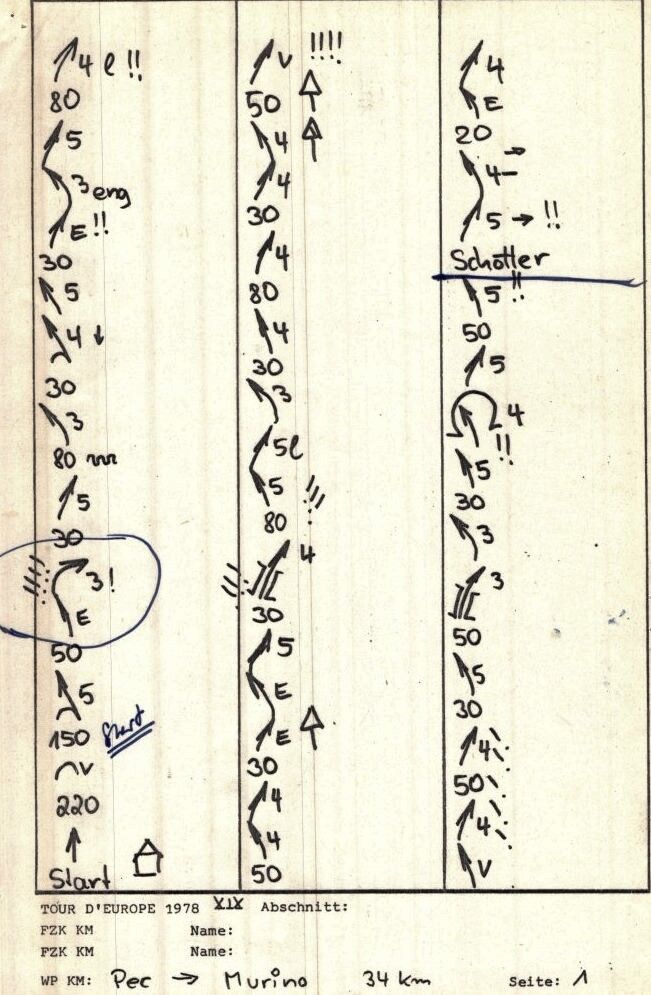 4 l !!
80
5
3 eng
E!!
30
5
4 ↓
30
3
80
5
30
!!!! 3!
E
50
5
150 Start
v
220
↑
Start
v !!!!
50
4
4
30
4
80
4
30
3
5l
5 !!!
80
4
!!! 
30
5
E
E
30
4
4
50
4
E
20
4 →
5 → !!
Schotter
5 !!
50
5
4
!!
5
30
3
3
50
5
30
4
50
4
v
TOUR D'EUROPE 1978 XIX Abschnitt:
FZK KM Name:
FZK KM Name:
WP KM: Pec → Murino 34 km Seite: 1